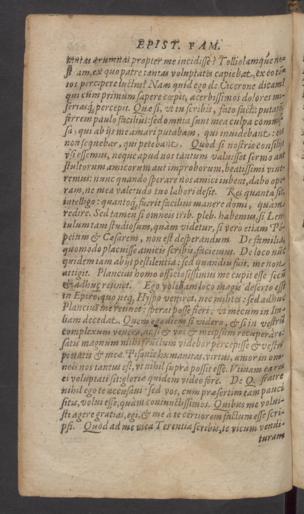 EPIST. FAM.
tantas ærumnas propter me incidisse? Tulliolamque no-
stram, ex quo patre tantas voluptates capiebat, ex eo tan-
tos percipere luctus? Nam quid ego de Cicerone dicam?
qui cum primum sapere cœpit, acerbissimos dolores mi-
seriasq; percepit. Quæ si, vt tu scribis, fato facta putarem,
ferrem paulo facilius: sed omnia sunt mea culpa commis-
sa; qui ab iis me amari putabam, qui inuidebant: eos
non sequebar, qui petebant. Quod si nostris consiliis
vsi essemus, neque apud nos tantum valuisset sermo aut
stultorum amicorum aut improborum, beatissimi viue-
remus: nunc quando sperare nos amici iubent, dabo ope-
ram, ne mea valetudo tuo labori desit. Res quanta sit,
intelligo: quantoq; fuerit facilius manere domi, quàm
redire. Sed tamen si omneis trib. pleb. habemus, si Len-
tulum tam studiosum, quàm videtur, si vero etiam Põ-
peium & Cæsarem, non est desperandum De familia,
quomodo placuisse amicis scribis, faciemus. De loco nũc
quidem iam abiit pestilentia: sed quandiu fuit, me non
attigit. Plancius homo officiosissimus me cupit esse secũ,
& adhuc retinet. Ego volebam loco magis deserto esse
in Epiro, quo neq; Hyspo veniret, nec milites: sed adhuc
Plancius me retinet: sperat posse fieri, vt mecum in Ita-
liam decedat. Quem ego diem si videro, & si in vestrũ
complexum venero, ac si & vos & meipsum recuperaro,
satis magnum mihi fructum videbor percepisse & vestræ
pietatis & meæ. Pisonis humanitas, virtus, amor in om-
neis nos tantus est, vt nihil supra possit esse. Vtinam ea res
ei voluptati sit: gloriæ quidem video fore. De Q. fratre
nihil ego te accusaui: sed vos, cum præsertim tam pauci
sitis, volui esse, quàm coniunctissimos. Quibus me volui-
sti agere gratias, egi, & me à te certiorem factum esse scri-
psi. Quod ad me mea Terentia scribis, te vicum vendi-
turam